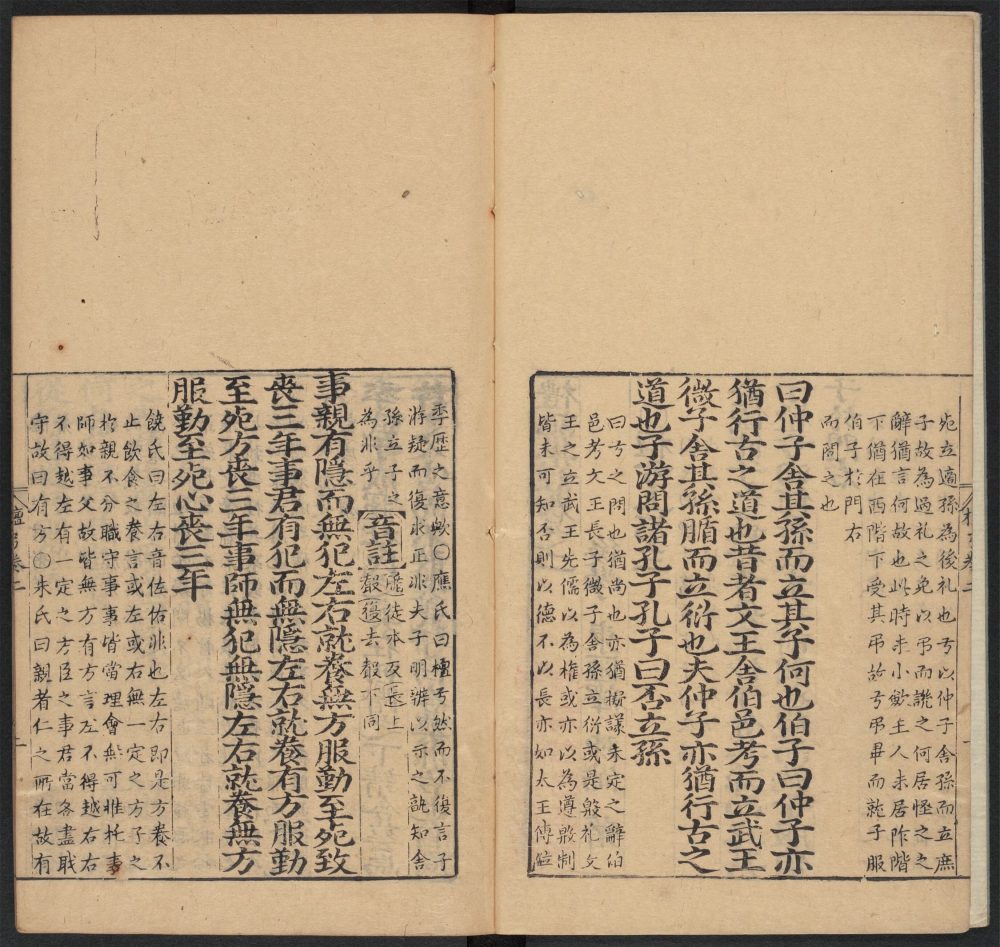 死立適孫為後礼也弓以仲子舍孫而立庶
子故為過礼之免以弔而譏之何居怪之之
辭猶言何故也此時未小斂主人未居阼階
下猶在西階下受其弔故弓弔畢而就子服
伯子於門右
而問之也
曰仲子舍其孫而立其子何也伯子曰仲子亦
猶行古之道也昔者文王舍伯邑考而立武王
微子舍其孫腯而立衍也夫仲子亦猶行古之
道也子游問諸孔子孔子曰否立孫
曰弓之問也猶尚也亦猶擬議未定之辭伯
邑考文王長子微子舍孫立衍或是殷礼文
王之立武王先儒以為權或亦以為遵殷制
皆未可知否則以德不以長亦如太王傳位
季歷之意歟○應氏曰檀弓然而不復言子
游疑而復求正非夫子明辨以示之孰知舍
孫立子之
為非乎
音註
腯徒本反長上
聲復去聲下同
事親有隱而無犯左右就養無方服勤至死致
喪三年事君有犯而無隱左右就養有方服勤
至死方喪三年事師無犯無隱左右就養無方
服勤至死心喪三年
饒氏曰左右音佐佑非也左右即是方養不
止飲食之養言或左或右無一定之方子之
於親不分職守事事皆當理會無可推托事
師如事父故皆無方有方言左不得越右右
不得越左有一定之方臣之事君當各盡職
守故曰有方○朱氏曰親者仁之所在故有
檀弓卷二